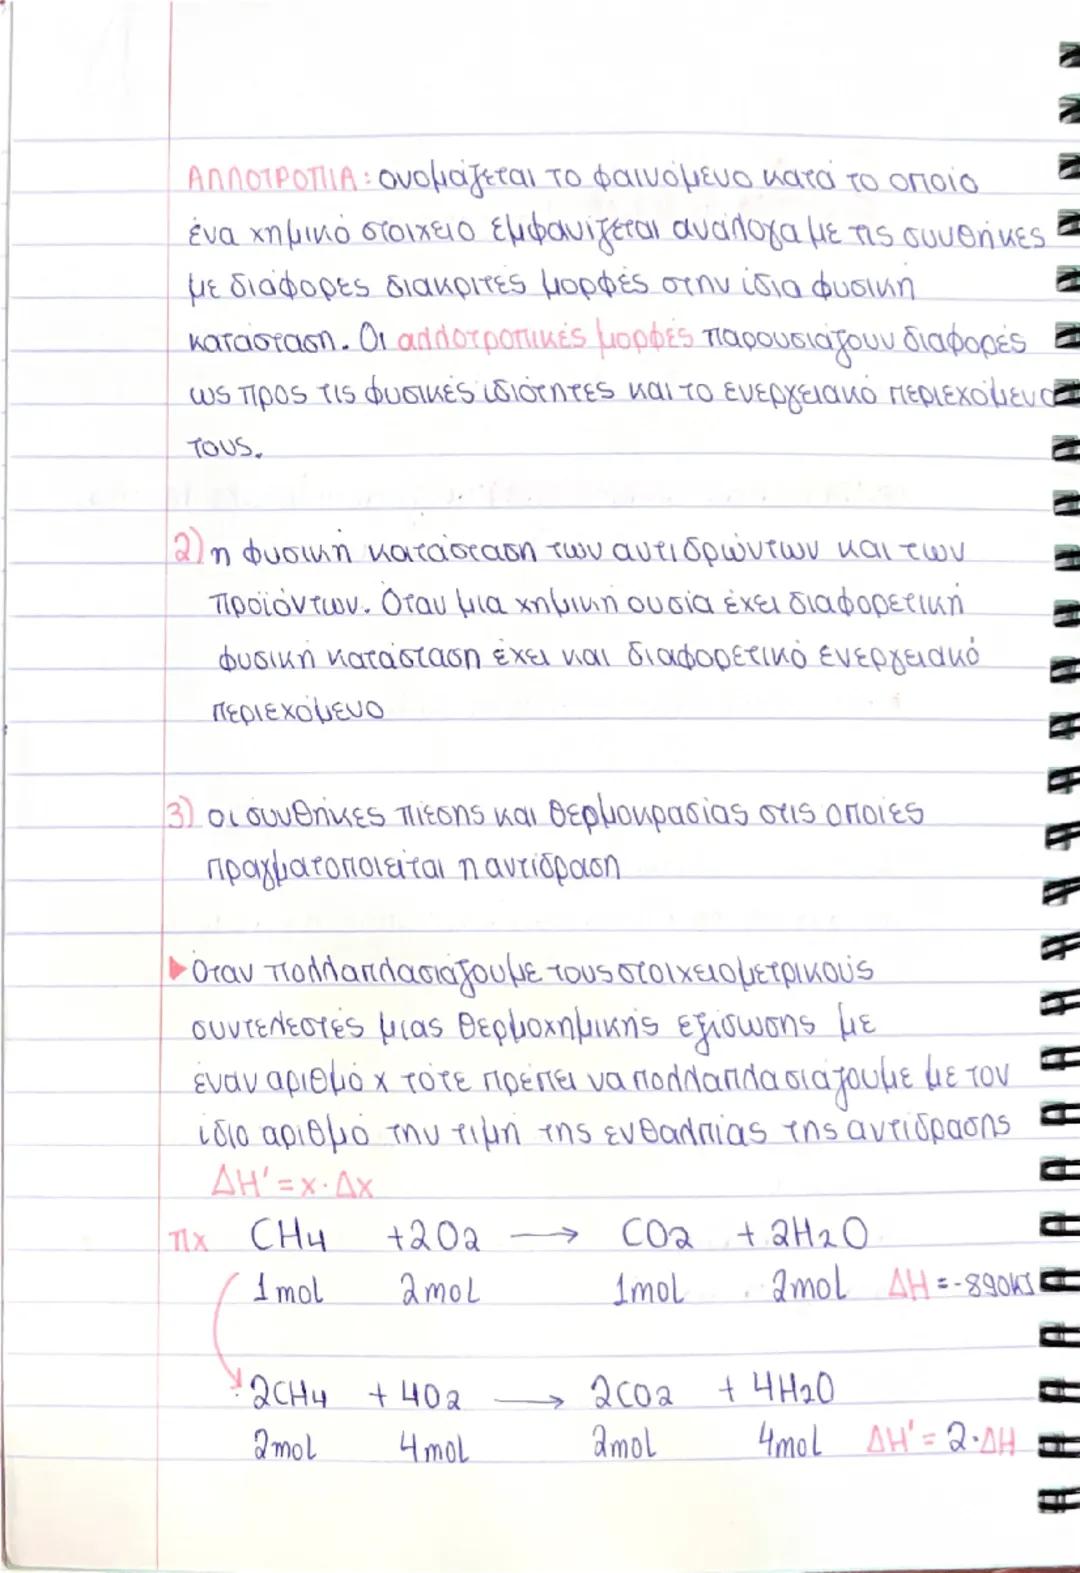 ΑΛΛΟΤΡΟΠΙΑ: ονομάζεται το φαινόμενο κατά το οποίο
ένα χημικό στοιχείο εμφανίζεται ανάλογα με τις συνθήκες
με διάφορες διακριτές μορφές στην ίδια φυσική
κατάσταση. Οι αλλοτροπικές μορφές παρουσιάζουν διαφορές
ως προς τις φυσικές ιδιότητες και το ενεργειακό περιεχόμενο
τους.
2) η φυσική κατάσταση των αντιδρώντων και των
προϊόντων. Όταν μια χημική ουσία έχει διαφορετική
φυσική κατάσταση έχει και διαφορετικό ενεργειακό
περιεχόμενο
3) οι συνθήκες πίεσης και θερμοκρασίας στις οποίες
πραγματοποιείται η αντίδραση
▶ Όταν πολλαπλασιάζουμε τους στοιχειομετρικούς
συντελεστές μιας θερμοχημικής εξίσωσης με
έναν αριθμό x τότε πρέπει να πολλαπλασιάζουμε με τον
ίδιο αριθμό την τιμή της ενθαλπίας της αντίδρασης
ΔH' = x · Δx
πx CH4 + 2O2 → CO2 + 2H2O
1mol 2mol 1mol 2mol ΔH = -890kJ
2CH4 + 4O2 → 2CO2 + 4H2O
2mol 4mol 2mol 4mol ΔH' = 2·ΔH